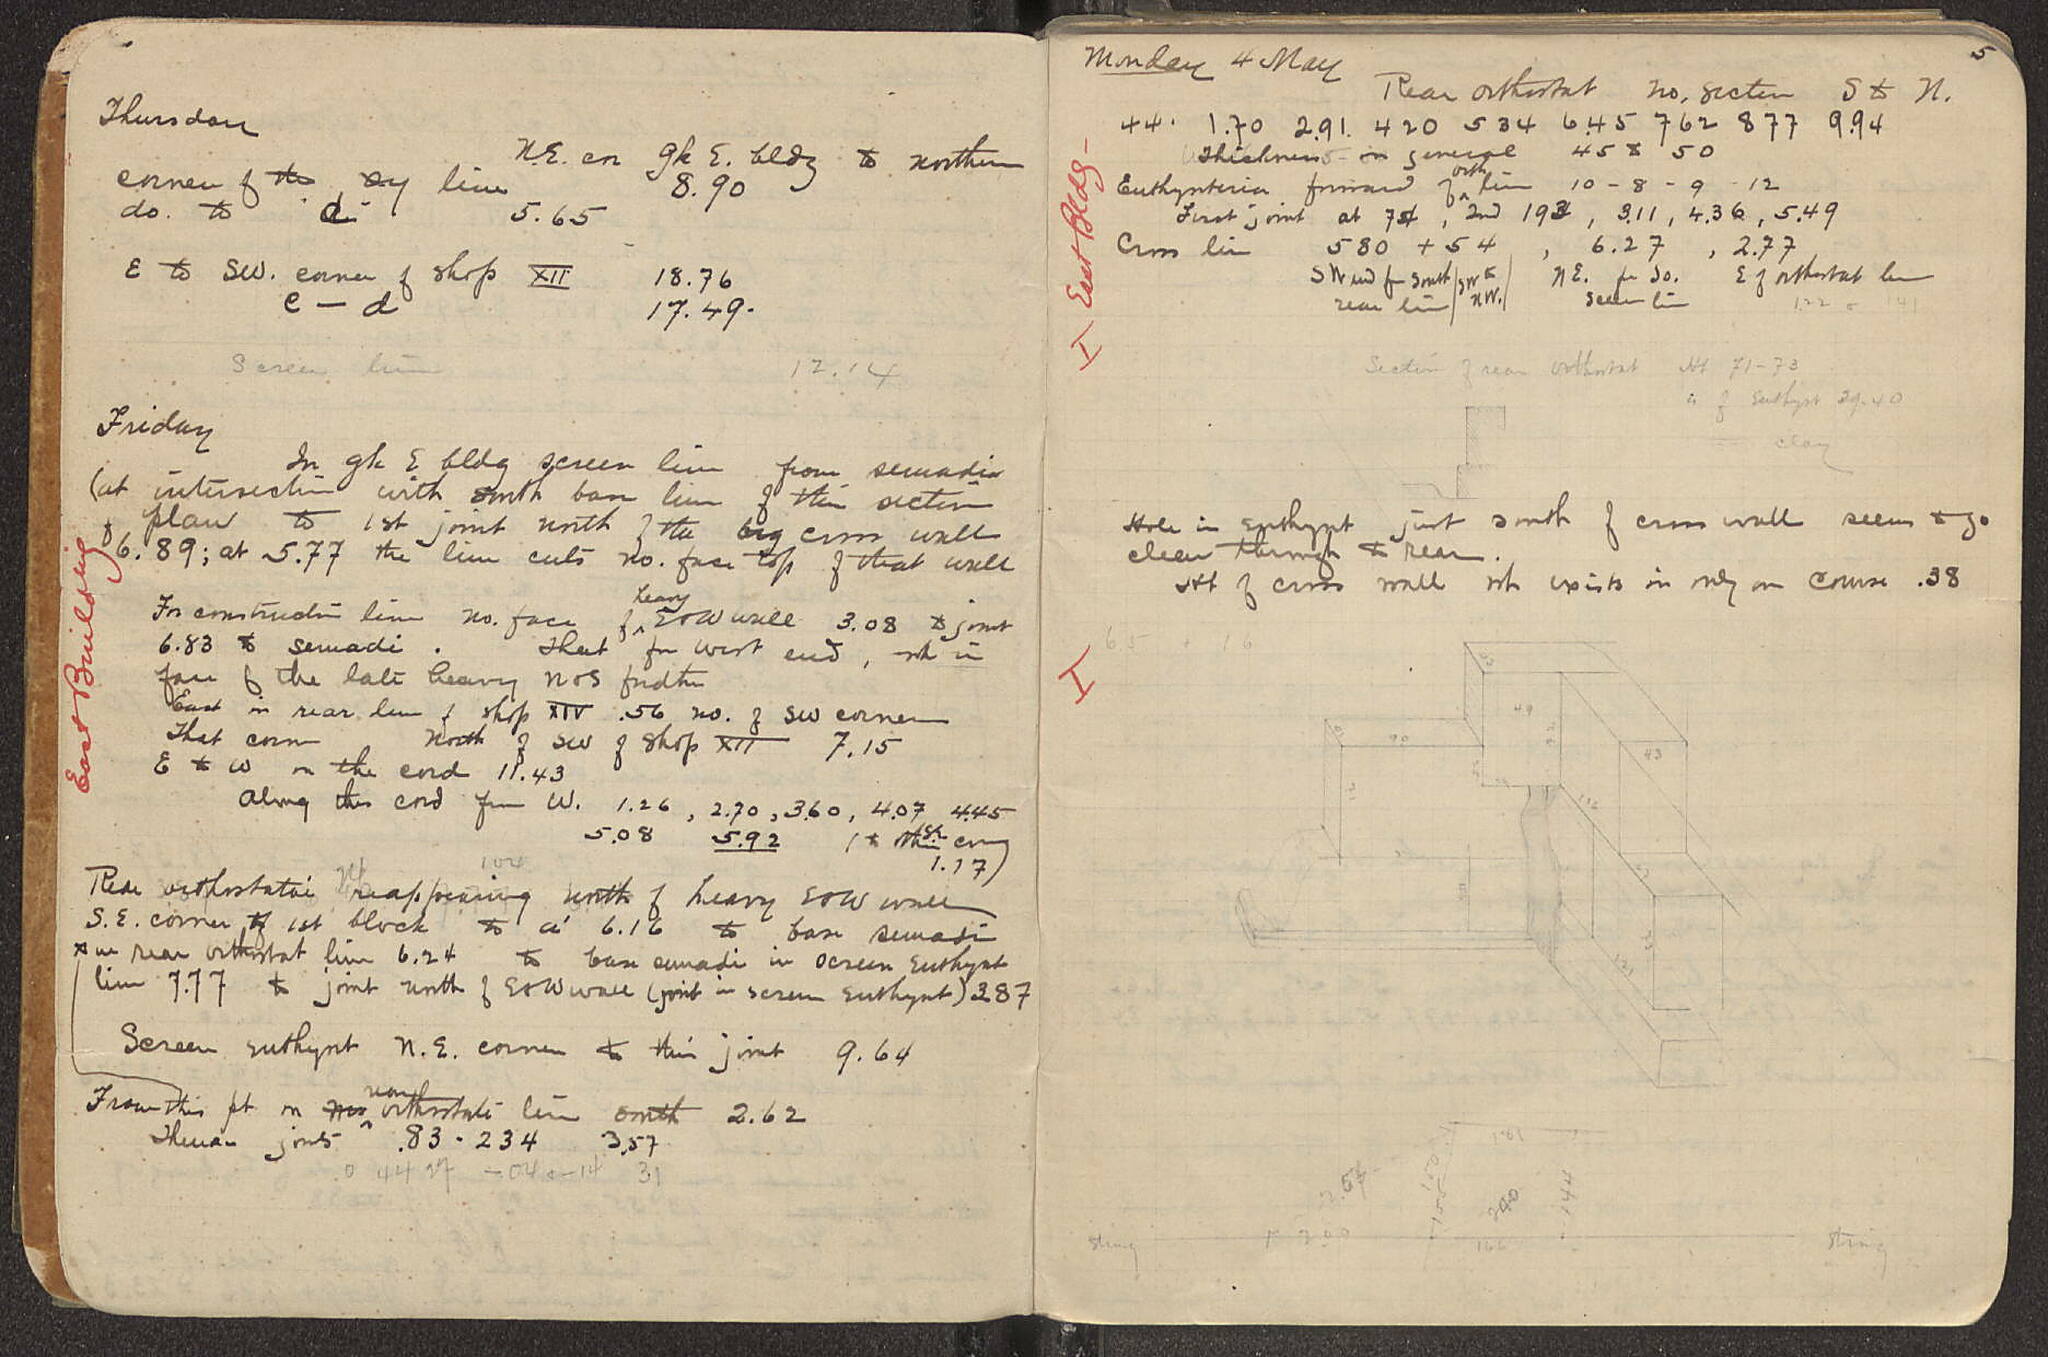 Thursday
N.E. cor gk E. bldg to northern
corner of line 8.90
do. to d 5.65
E to SW. corner of shop XII 18.76
c — d 17.49.
Screen line 12.14
Friday
In gk E bldg screen line from semadia
(at intersection with south base line of this section
plan to 1st joint north of the big cross wall
6.89; at 5.77 the line cuts no. face top of that wall
For construction line no. face of heavy E&W wall 3.08 to joint
6.83 to semadi. That for west end, wh in
face of the late heavy N&S fndtn
East in rear line of shop XIV .56 no. of SW corner
That corn North of SW of shop XII 7.15
E to W on the cord 11.43
Along this cord from W. 1.26, 2.70, 3.60, 4.07 4.45
5.08 5.92
1.17)
Rear orthostatai reappearing north of heavy E&W wall
S.E. corner of 1st block to a' 6.16 to base semadi
in rear orthostat line 6.24 to base semadi in screen Euthynt
line 7.77 to joint north of E&W wall (joint in screen Euthynt) 3.87
Screen Euthynt N.E. corner to this joint 9.64
From this pt on rear orthostate line south 2.62
joints .83 · 234 3.57
East Building
5
Monday 4 May
Rear orthostat no. section S to N.
44. 1.70 2.91. 420 534 6.45 762 877 9.94
Thickness in general 45 to 50
Euthynteria forward of orth line 10 - 8 - 9 - 12
First joint at 74, 2nd 193, 3.11, 4.36, 5.49
Cross line 580 + 54, 6.27, 2.77
SW end for South / SW to NW. / N.E. for do. E of orthostat line
rear line screen line
122 141
I East Bldg-
Section of rear orthostat Ht 71-73
" of Euthynt 39.40
clay
Hole in Euthynt just south of cross wall seems to go
clear through to rear.
Ht of cross wall wh exists in only one course .38
65 + 16
I
49
90
43
121
2.57
1.55
200
1.44
string 200 166 string